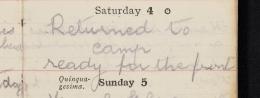 Saturday 4
Returned to
camp
ready for the front
Quinqua-
gesima.
Sunday 5